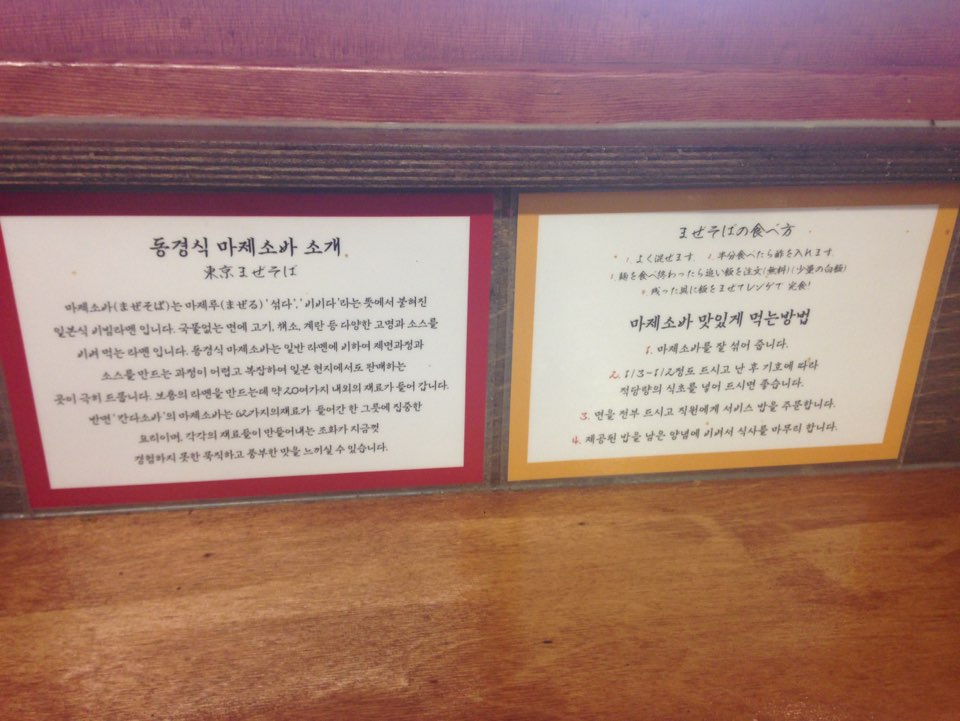 동경식 마제소바 소개
東京まぜそば
마제소바(まぜそば)는 마제루(まぜる) '섞다', '비비다'라는 뜻에서 붙혀진
일본식 비빔라멘 입니다. 국물없는 면에 고기, 채소, 계란 등 다양한 고명과 소스를
비벼 먹는 라멘 입니다. 동경식 마제소바는 일반 라멘에 비하여 제면과정과
소스를 만드는 과정이 어렵고 복잡하여 일본 현지에서도 판매하는
곳이 극히 드뭅니다. 보통의 라멘을 만드는데 약 20여가지 내외의 재료가 들어 갑니다.
반면 '칸다소바'의 마제소바는 62가지의재료가 들어간 한 그릇에 집중한
요리이며, 각각의 재료들이 만들어내는 조화가 지금껏
경험하지 못한 묵직하고 풍부한 맛을 느끼실 수 있습니다.
まぜそばの食べ方
1. よく混ぜます. 2. 半分食べたら酢を入れます.
3. 麺を食べ終わったら追い飯を注文(無料)(少量の白飯)
4. 残った具に飯をまぜてレンゲで 完食!
마제소바 맛있게 먹는방법
1. 마제소바를 잘 섞어 줍니다.
2. 1/3~1/2정도 드시고 난 후 기호에 따라
적당량의 식초를 넣어 드시면 좋습니다.
3. 면을 전부 드시고 직원에게 서비스 밥을 주문합니다.
4. 제공된 밥을 남은 양념에 비벼서 식사를 마무리 합니다.